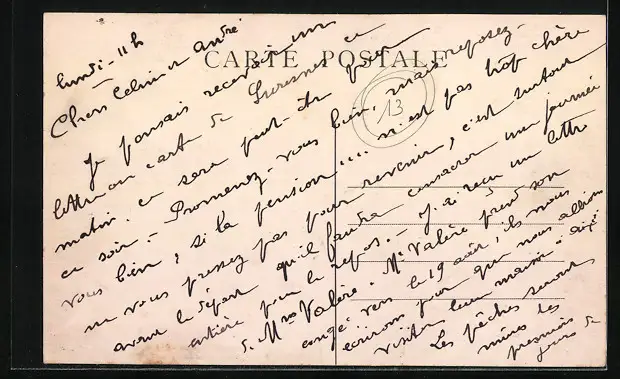 CARTE POSTALE
13
lundi - 11 h
Chers Céline et André
Je pensais recevoir une
lettre ou carte de Suresnes ce
matin, ce sera peut-être pour
ce soir. - Promenez-vous bien, mais reposez-
vous bien, si la pension .... n'est pas trop chère
ne vous pressez pas pour revenir, c'est surtout
avant le départ qu'il faudra consacrer une journée
entière pour le repos. - J'ai reçu une lettre
de Mme Valère. Mr Valère prend son
congé vers le 19 août, ils nous
écriront pour que nous allions
visiter leur maison
Les pêches seront
mûres les
premiers
jours de